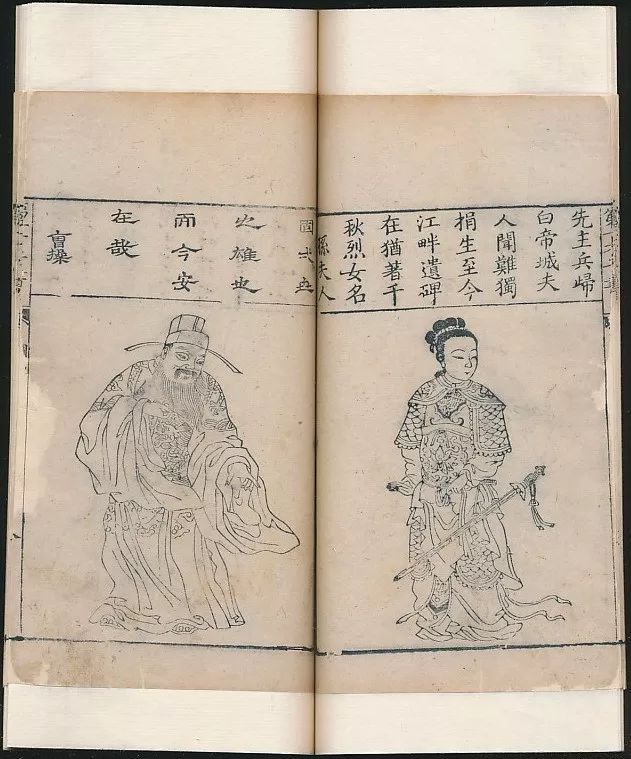 先主兵歸
白帝城夫
人聞難獨
捐生至今
江畔遺碑
在猶著千
秋烈女名
孫夫人
固一世
之雄也
而今安
在哉
曹操